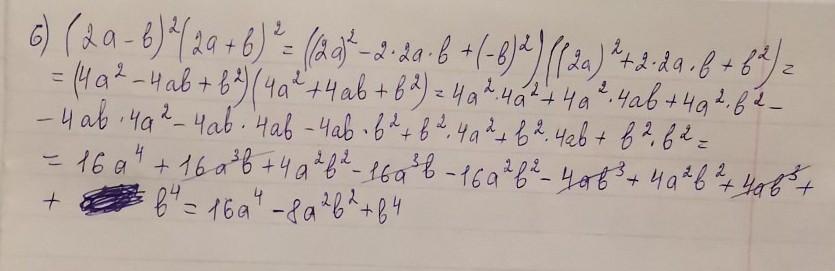 б) (2a-b)²(2a+b)² = ((2a)²-2·2a·b+(-b)²)((2a)²+2·2a·b+b²)=
= (4a²-4ab+b²)(4a²+4ab+b²)=4a²·4a²+4a²·4ab+4a²·b²-
-4ab·4a²-4ab·4ab-4ab·b²+b²·4a²+b²·4ab+b²·b²=
= 16a⁴+16a³b+4a²b²-16a³b-16a²b²-4ab³+4a²b²+4ab³+
+ b⁴=16a⁴-8a²b²+b⁴